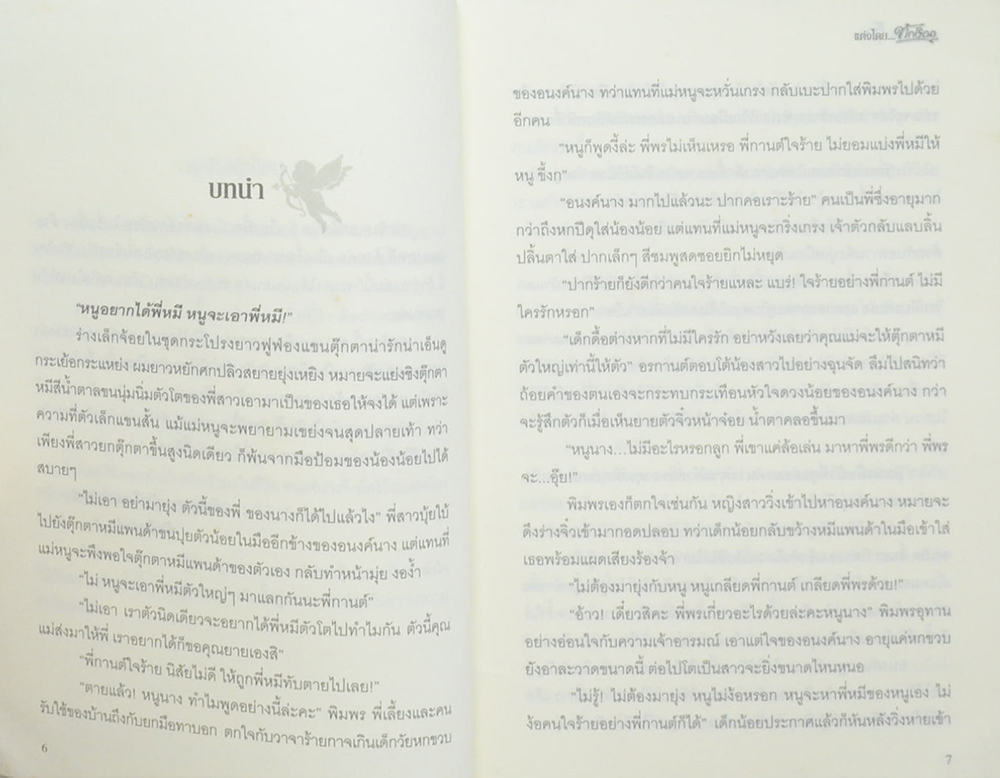 บทนำ
“หนูอยากได้พี่หมี หนูจะเอาพี่หมี!”
ร่างเล็กจ้อยในชุดกระโปรงยาวฟูฟ่องแขนตุ๊กตาน่ารักน่าเอ็นดู
กระเย้อกระแหย่ง ผมยาวหยักศกปลิวสยายยุ่งเหยิง หมายจะแย่งชิงตุ๊กตา
หมีสีน้ำตาลขนนุ่มนิ่มตัวโตของพี่สาวเอามาเป็นของเธอให้จงได้ แต่เพราะ
ความที่ตัวเล็กแขนสั้น แม้แม่หนูจะพยายามเขย่งจนสุดปลายเท้า ทว่า
เพียงพี่สาวยกตุ๊กตาขึ้นสูงนิดเดียว ก็พ้นจากมือป้อมของน้องน้อยไปได้
สบายๆ
“ไม่เอา อย่ามายุ่ง ตัวนี้ของพี่ ของนางก็ได้ไปแล้วไง” พี่สาวบุ้ยใบ้
ไปยังตุ๊กตาหมีแพนด้าขนปุยตัวน้อยในมืออีกข้างของอนงค์นาง แต่แทนที่
แม่หนูจะพึงพอใจตุ๊กตาหมีแพนด้าของตัวเอง กลับทำหน้ามุ่ย งอง้ำ
“ไม่ หนูจะเอาพี่หมีตัวใหญ่ๆ มาแลกกันนะพี่กานต์”
“ไม่เอา เราตัวนิดเดียวจะอยากได้พี่หมีตัวโตไปทำไมกัน ตัวนี้คุณ
แม่ส่งมาให้พี่ เราอยากได้ก็ขอคุณยายเองสิ”
“พี่กานต์ใจร้าย นิสัยไม่ดี ให้ถูกพี่หมีทับตายไปเลย!”
“ตายแล้ว! หนูนาง ทำไมพูดอย่างนี้ล่ะคะ” พิมพร พี่เลี้ยงและคน
รับใช้ของบ้านถึงกับยกมือทาบอก ตกใจกับวาจาร้ายกาจเกินเด็กวัยหกขวบ
6
แต่งโดย...
ของอนงค์นาง ทว่าแทนที่แม่หนูจะหวั่นเกรง กลับเบะปากใส่พิมพรไปด้วย
อีกคน
“หนูก็พูดงี้ล่ะ พี่พรไม่เห็นเหรอ พี่กานต์ใจร้าย ไม่ยอมแบ่งพี่หมีให้
หนู ขี้งก”
“อนงค์นาง มากไปแล้วนะ ปากคอเราะร้าย” คนเป็นพี่ซึ่งอายุมาก
กว่าถึงหกปีดุใส่น้องน้อย แต่แทนที่แม่หนูจะกริ่งเกรง เจ้าตัวกลับแลบลิ้น
ปลิ้นตาใส่ ปากเล็กๆ สีชมพูสดซอยยิกไม่หยุด
“ปากร้ายก็ยังดีกว่าคนใจร้ายแหละ แบร่! ใจร้ายอย่างพี่กานต์ ไม่มี
ใครรักหรอก”
“เด็กดื้อต่างหากที่ไม่มีใครรัก อย่าหวังเลยว่าคุณแม่จะให้ตุ๊กตาหมี
ตัวใหญ่เท่านี้ให้ตัว” อรกานต์ตอบโต้น้องสาวไปอย่างฉุนจัด ลืมไปสนิทว่า
ถ้อยคำของตนเองจะกระทบกระเทือนหัวใจดวงน้อยของอนงค์นาง กว่า
จะรู้สึกตัวก็เมื่อเห็นยายตัวจิ๋วหน้าจ๋อย น้ำตาคลอขึ้นมา
“หนูนาง...ไม่มีอะไรหรอกลูก พี่เขาแค่ล้อเล่น มาหาพี่พรดีกว่า พี่พร
จะ...อุ๊ย!”
พิมพรเองก็ตกใจเช่นกัน หญิงสาววิ่งเข้าไปหาอนงค์นาง หมายจะ
ดึงร่างจิ๋วเข้ามากอดปลอบ ทว่าเด็กน้อยกลับขว้างหมีแพนด้าในมือเข้าใส่
เธอพร้อมแผดเสียงร้องจ้า
“ไม่ต้องมายุ่งกับหนู หนูเกลียดพี่กานต์ เกลียดพี่พรด้วย!”
“อ้าว! เดี๋ยวสิคะ พี่พรเกี่ยวอะไรด้วยล่ะคะหนูนาง” พิมพรอุทาน
อย่างอ่อนใจกับความเจ้าอารมณ์ เอาแต่ใจของอนงค์นาง อายุแค่หกขวบ
ยังอาละวาดขนาดนี้ ต่อไปโตเป็นสาวจะยิ่งขนาดไหนหนอ
“ไม่รู้! ไม่ต้องมายุ่ง หนูไม่ง้อหรอก หนูจะหาพี่หมีของหนูเอง ไม่
ง้อคนใจร้ายอย่างพี่กานต์ก็ได้” เด็กน้อยประกาศแล้วก็หันหลังวิ่งหายเข้า
7